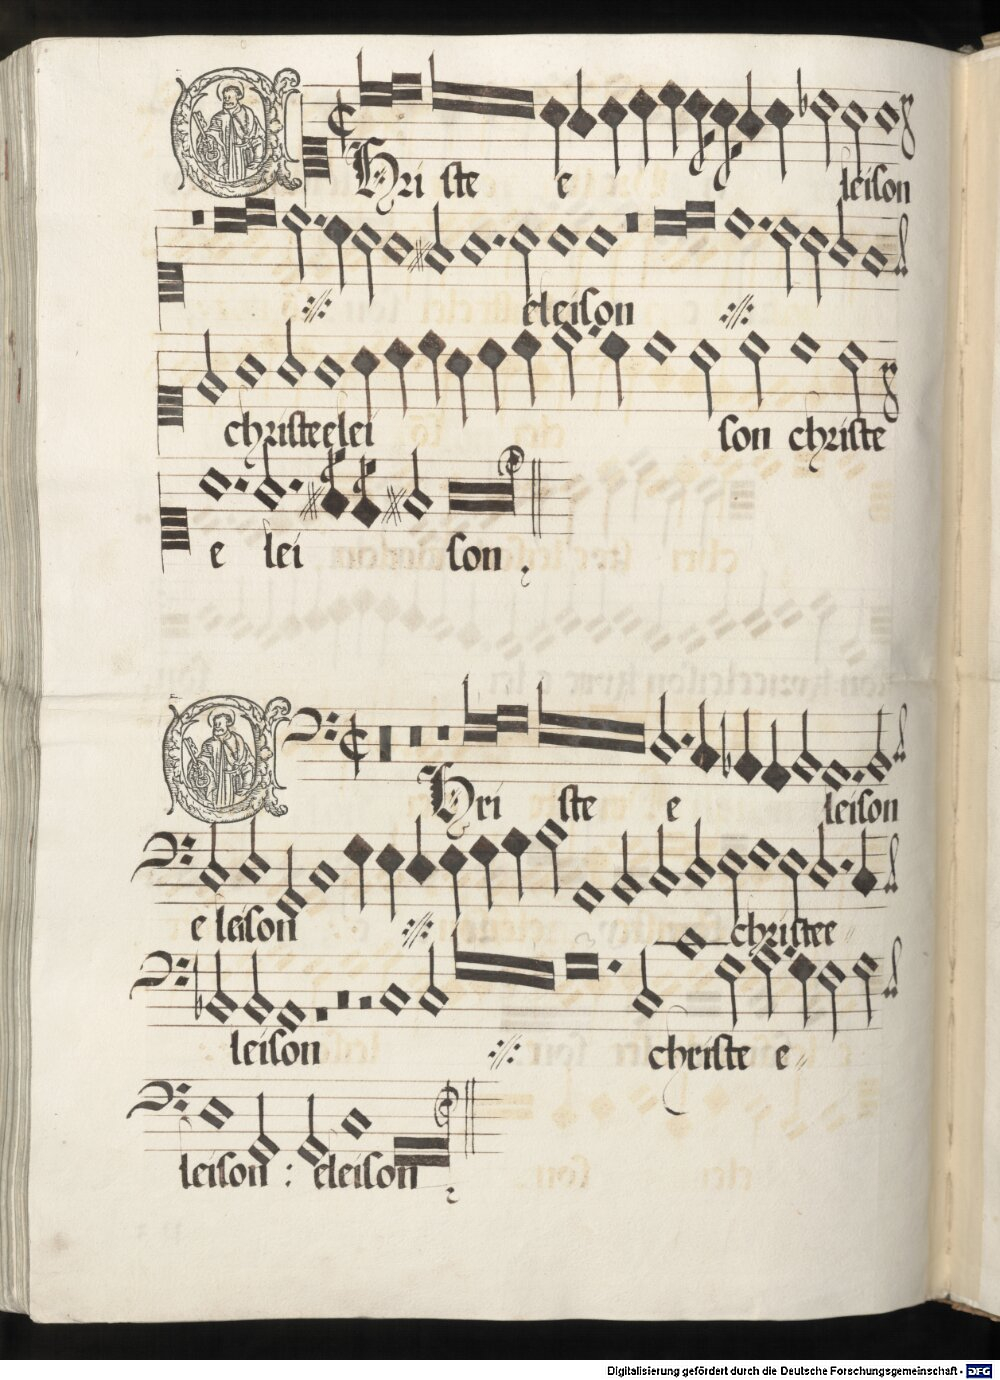 Christe e leison
eleison
christe elei son christe
e lei son
Christe e leison
e leison christe e
leison christe e
leison : eleison
Digitalisierung gefördert durch die Deutsche Forschungsgemeinschaft - DFG